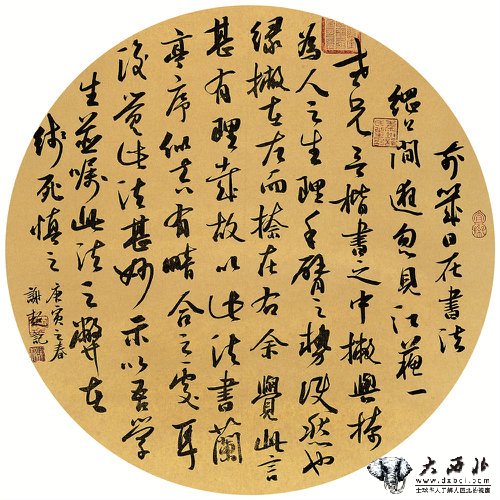 前幾日在書法
網間遊忽見江蘇一
老兄言楷書之中撇與捺
為人之生理手臂之勢使然也
緣撇在左而捺在右余覺此言
甚有理哉故以此法書蘭
亭序似真有暗合之處耳
後覺此法甚妙示以吾學
生並囑此法之弊在
死慎之
庚寅之春
謝
大西北
www.dxbci.com